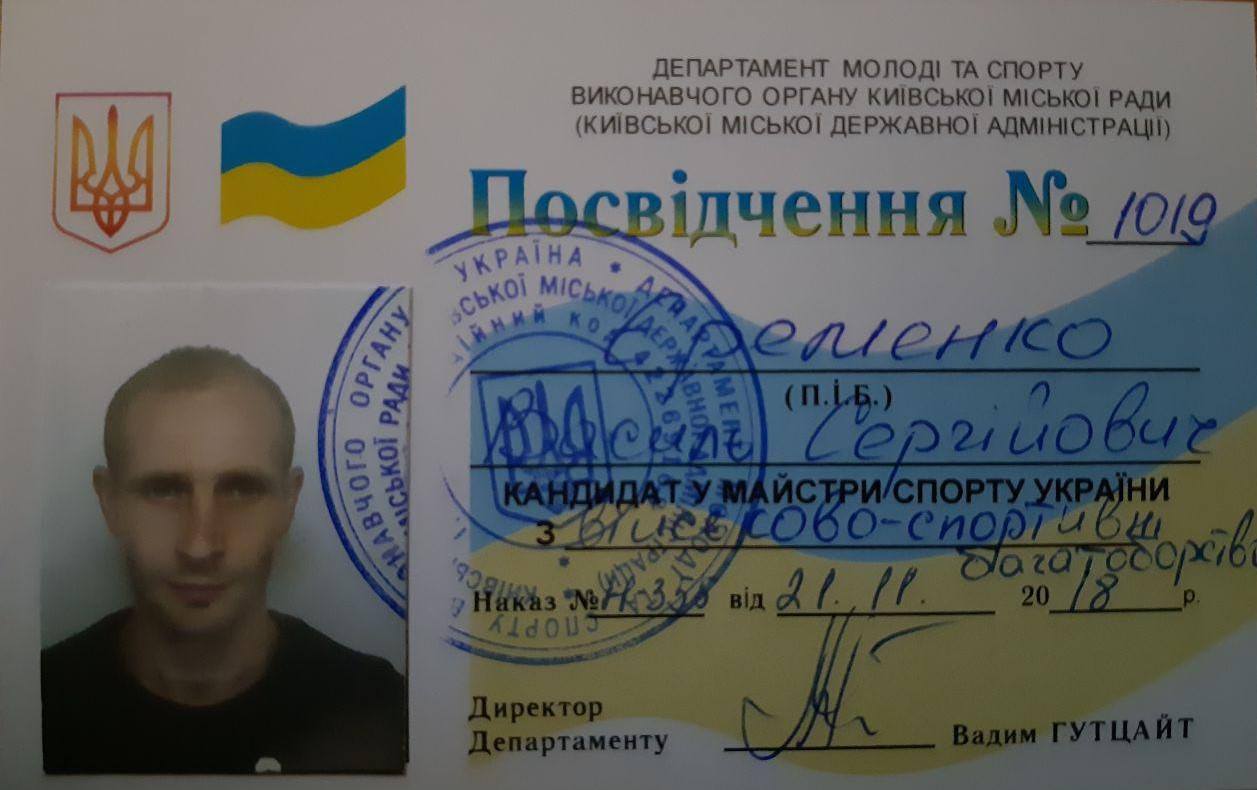 ДЕПАРТАМЕНТ МОЛОДІ ТА СПОРТУ
ВИКОНАВЧОГО ОРГАНУ КИЇВСЬКОЇ МІСЬКОЇ РАДИ
(КИЇВСЬКОЇ МІСЬКОЇ ДЕРЖАВНОЇ АДМІНІСТРАЦІЇ)
Посвідчення № 1019
Єременко
(П.І.Б.)
Василь Сергійович
КАНДИДАТ У МАЙСТРИ СПОРТУ УКРАЇНИ
З військово-спортивні
багатоборство
Наказ № від 21.11. 2018 р.
Директор
Департаменту Вадим ГУТЦАЙТ
УКРАЇНА * ДЕПАРТАМЕН
СЬКОЇ МІСЬКОЇ ДЕРЖАВНО
НАВЧОГО ОРГАНУ
МІСЬКОЇ РАДИ